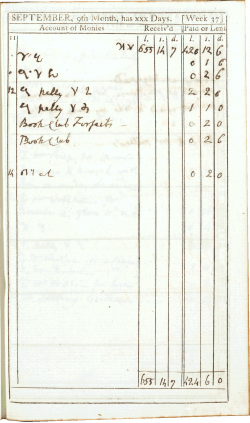 SEPTEMBER, 9th Month, has xxx Days. [Week 37]
Account of Monies Receiv'd Paid or Lent
l. s. d. l. s. d.
11 655 14 7 420 12 6
0 1 6
0 2 6
12 2 2 0
1 1 0
Book Club Forfeits 0 2 0
Book Club 0 2 6
14 0 2 0
655 14 7 424 6 0